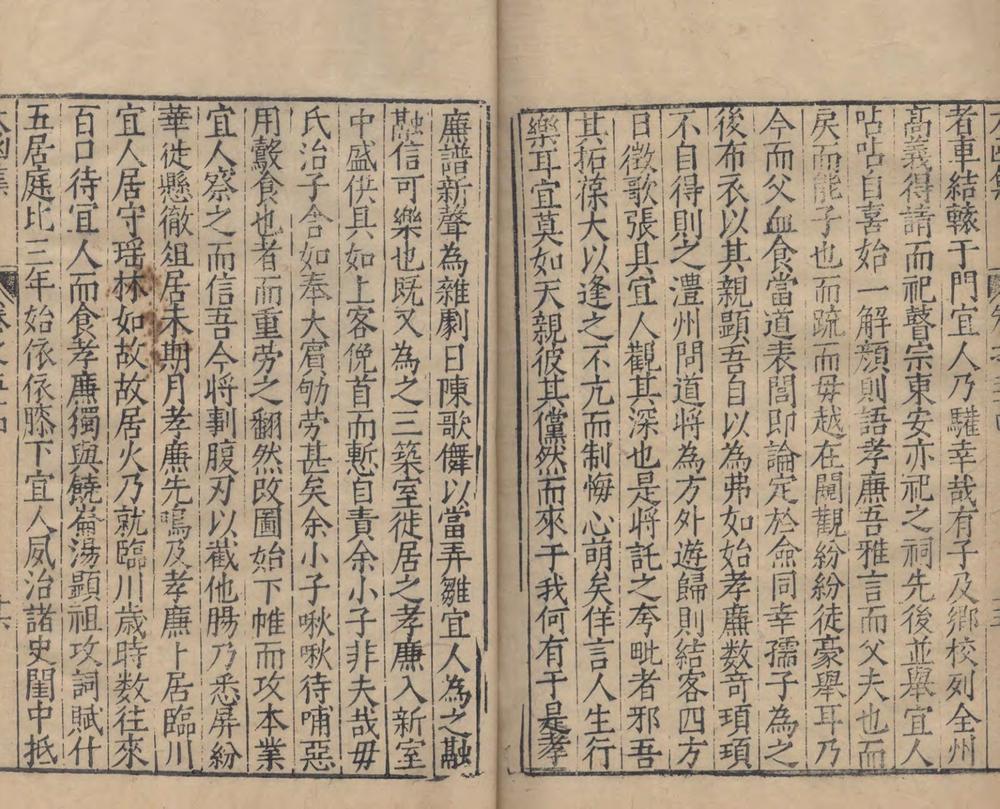 者車結轍于門宜人乃驩幸哉有子及鄉校列全州
高義得請而祀瞽宗東安亦祀之祠先後並舉宜人
呫呫自喜始一解顏則語孝廉吾雅言而父夫也而
戾而能子也而疏而毋越在閫觀紛紛徒豪舉耳乃
今而父血食當道表閭即論定於僉同幸孺子為之
後布衣以其親顯吾自以為弗如始孝廉数竒頊頊
不自得則之澧州問道將為方外遊歸則結客四方
日徵歌張具宜人觀其深也是將託之夸毗者邪吾
其拓葆大以逢之不亢而制悔心萌矣佯言人生行
樂耳宜莫如天親彼其儻然而來于我何有于是孝
廉譜新聲為雜劇日陳歌儛以當弄雛宜人為之融
融信可樂也既又為之三築室徙居之孝廉入新室
中盛供具如上客俛首而慙自責余小子非夫哉毋
氏治子舍如奉大賓劬劳甚矣余小子啾啾待哺惡
用鷇食也者而重劳之翻然改圖始下帷而攻本業
宜人察之而信吾今將剚腹刃以截他腸乃悉屏紛
華徙懸徹俎居未期月孝廉先鳴及孝廉卜居臨川
宜人居守瑶林如故故居火乃就臨川歲時数往來
百口待宜人而食孝廉獨與饒崙湯顯祖攻詞賦什
五居庭比三年始依依膝下宜人夙治諸史閨中抵